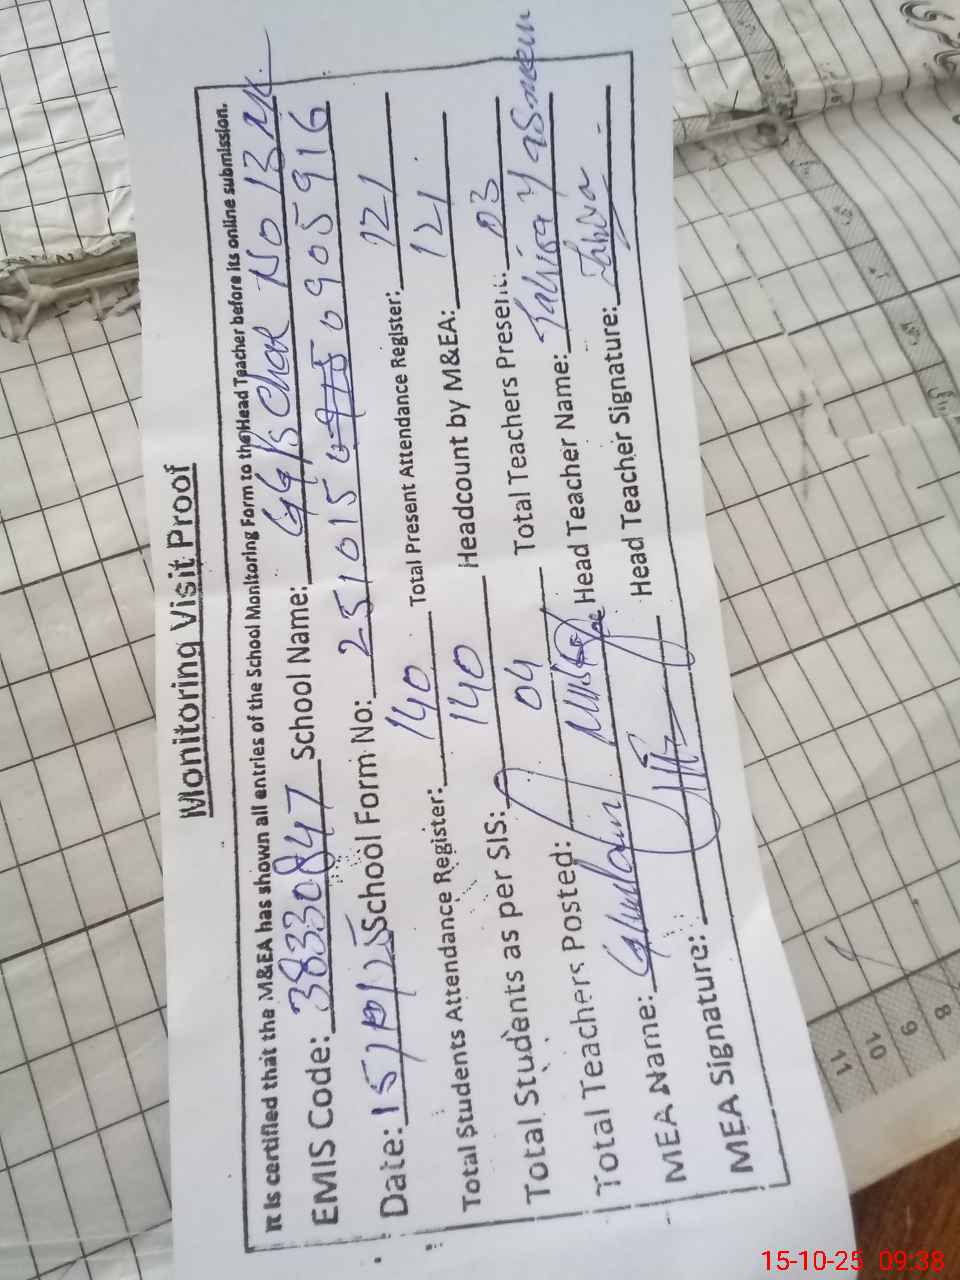 Monitoring Visit Proof
It is certified that the M&EA has shown all entries of the School Monitoring Form to the Head Teacher before its online submission.
EMIS Code: 38330847 School Name: GGPS Chak No 13
Date: 15/10/25 School Form No: 251015 0905916
Total Students Attendance Register: 140 Total Present Attendance Register: 121
Total Students as per SIS: 140 Headcount by M&EA: 121
Total Teachers Posted: 04 Total Teachers Present: 03
MEA Name: Ghulam Head Teacher Name: Tahira Yasmeen
MEA Signature: Head Teacher Signature: Tahira
11
10
9
8
15-10-25 09:38